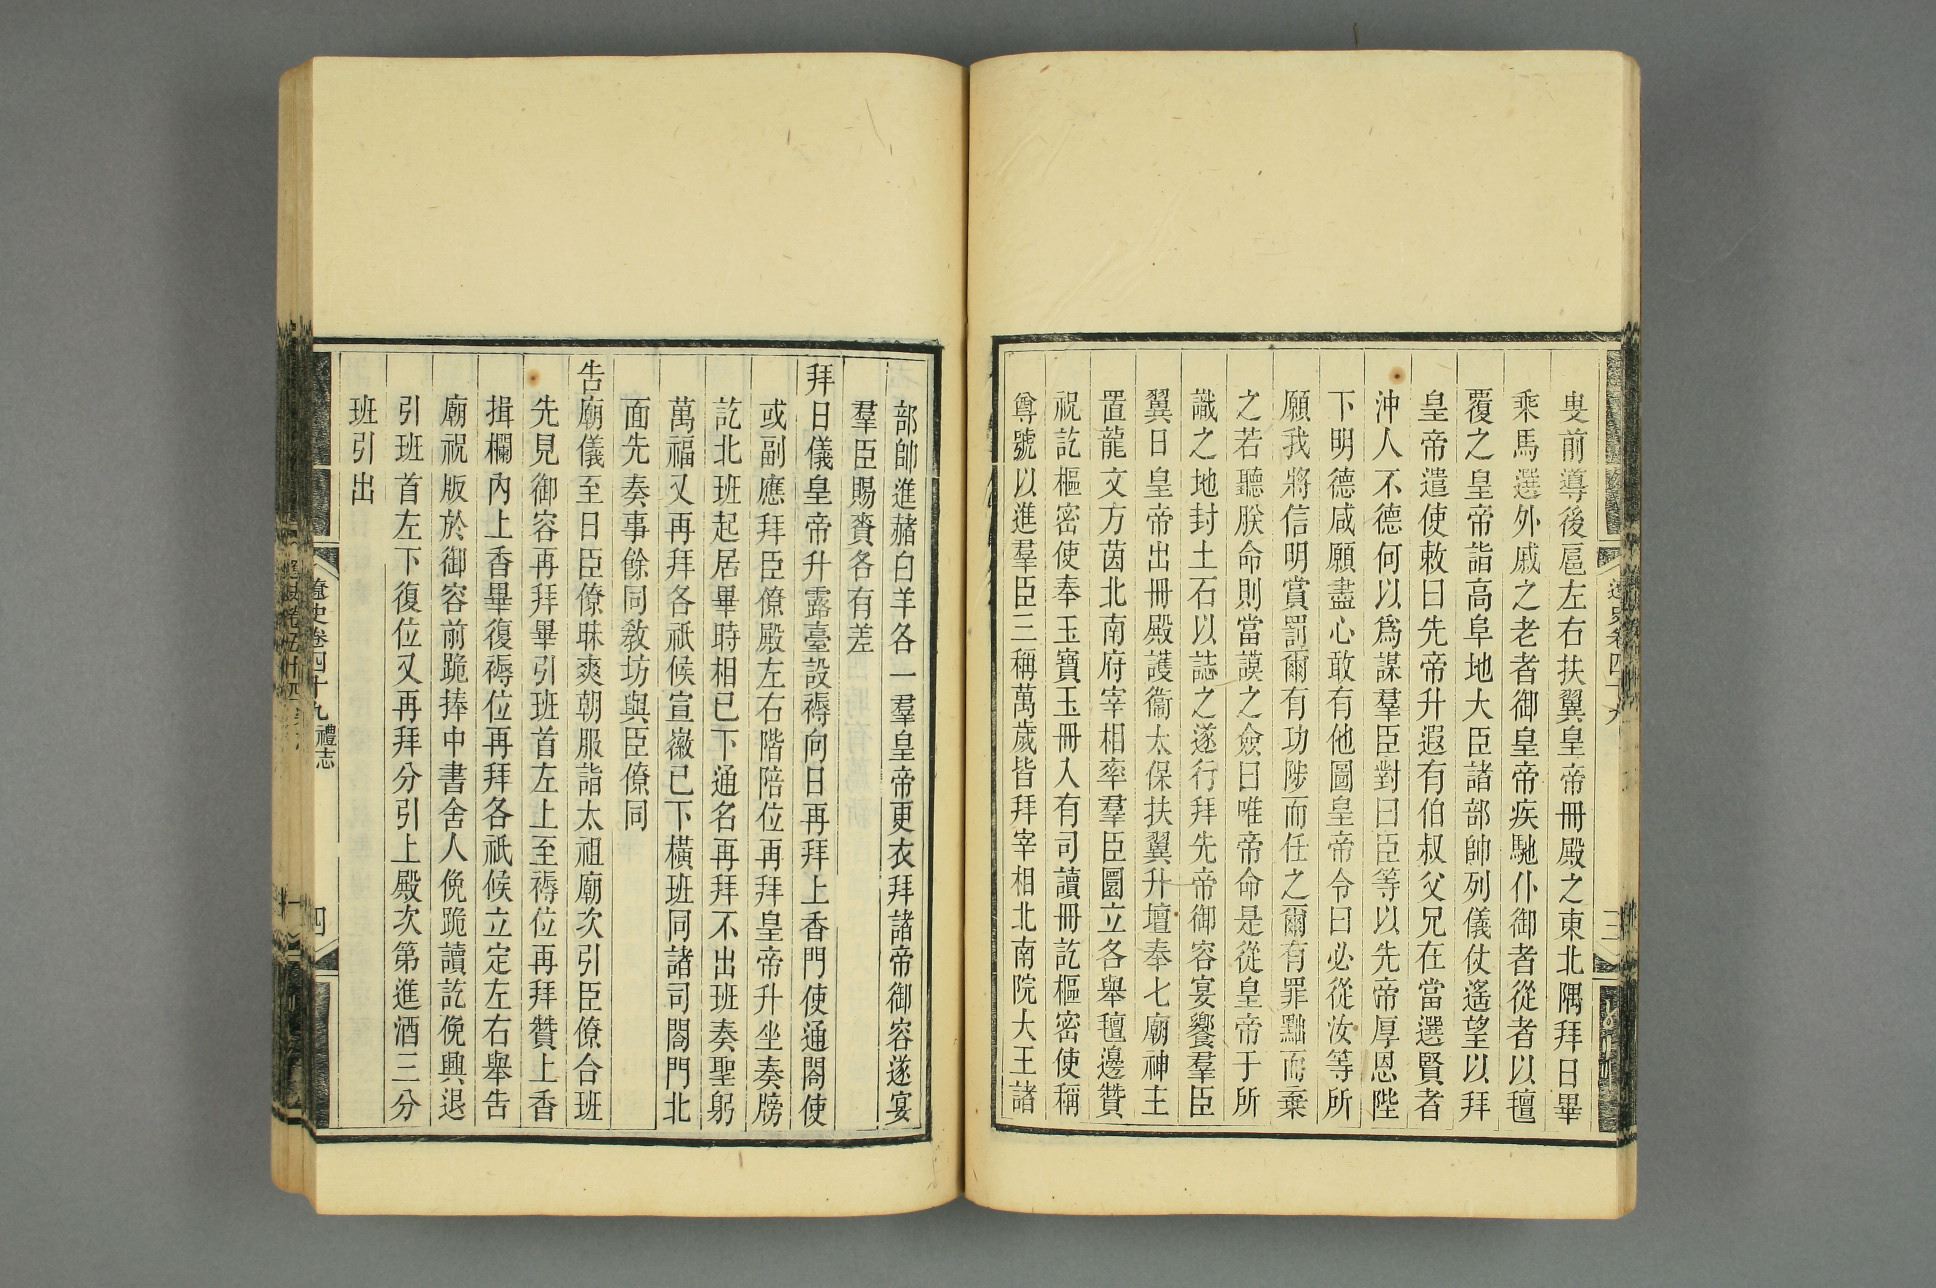 叟前導後扈左右扶翼皇帝冊殿之東北隅拜日畢
乘馬選外戚之老者御皇帝疾馳仆御者從者以氊
覆之皇帝詣高阜地大臣諸部帥列儀仗遙望以拜
皇帝遣使敕曰先帝升遐有伯叔父兄在當選賢者
沖人不德何以爲謀羣臣對曰臣等以先帝厚恩陛
下明德咸願盡心敢有他圖皇帝令曰必從汝等所
願我將信明賞罰爾有功陟而任之爾有罪黜而棄
之若聽朕命則當謨之僉曰唯帝命是從皇帝于所
識之地封土石以誌之遂行拜先帝御容宴饗羣臣
翼日皇帝出冊殿護衞太保扶翼升壇奉七廟神主
置龍文方茵北南府宰相率羣臣圜立各舉氊邊贊
祝訖樞密使奉玉寶玉冊入有司讀冊訖樞密使稱
尊號以進羣臣三稱萬歲皆拜宰相北南院大王諸
遼史卷四十九
三
部帥進赭白羊各一羣皇帝更衣拜諸帝御容遂宴
羣臣賜賚各有差
拜日儀皇帝升露臺設褥向日再拜上香門使通閤使
或副應拜臣僚殿左右階陪位再拜皇帝升坐奏牓
訖北班起居畢時相已下通名再拜不出班奏聖躬
萬福又再拜各祗候宣徽已下橫班同諸司閤門北
面先奏事餘同敎坊與臣僚同
告廟儀至日臣僚昧爽朝服詣太祖廟次引臣僚合班
先見御容再拜畢引班首左上至褥位再拜贊上香
揖欄內上香畢復褥位再拜各祗候立定左右舉告
廟祝版於御容前跪捧中書舍人俛跪讀訖俛興退
引班首左下復位又再拜分引上殿次第進酒三分
班引出
遼史卷四十九 禮志
四